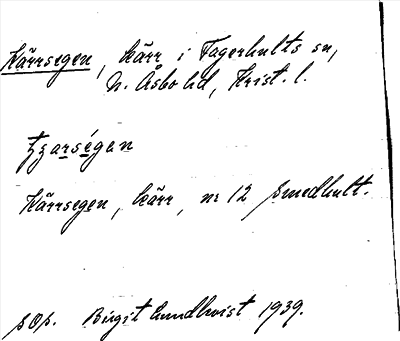 Kärrsegen, kärr i Fagerhults sn,
N. Åsbo hd, Krist. l.
Kärrsegen, kärr, nr 12 Smedhult.
Birgit Lundkvist 1939.